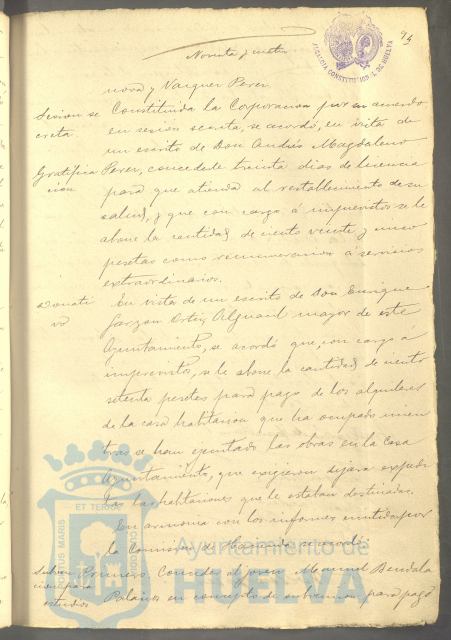 Noventa y cuatro
94
ALCALDIA CONSTITUCIONAL DE HUELVA
nova y Vazquez Perez.
Sesion se
creta.
Constituida la Corporacion por su acuerdo
en sesion secreta, se acordó, en vista de
un escrito de Don Andrés Magdaleno
Gratifica
cion
Perez, concederle treinta dias de licencia
para que atienda al restablecimiento de su
salud, y que con cargo á imprevistos se le
abone la cantidad de ciento veinte y cinco
pesetas como remuneracion á servicios
extraordinarios.
Donati
vo
En vista de un escrito de Don Enrique
Garzon Ortiz, Alguacil mayor de este
Ayuntamiento, se acordó que, con cargo á
imprevistos, se le abone la cantidad de ciento
setenta pesetas para pago de los alquileres
de la casa habitacion que ha ocupado mien
tras se han ejecutado las obras en la Casa
Ayuntamiento, que exigieron dejara expedi
tas las habitaciones que le estaban destinadas.
En armonia con los informes emitidos por
la Comision de Hacienda, se acordó:
Subven
cion para
estudios
Primero. Conceder al joven Manuel
Palacios en concepto de subvencion para pago
PORTUS MARIS
ET TERRAE
CUSTODIA
Ayuntamiento de
HUELVA